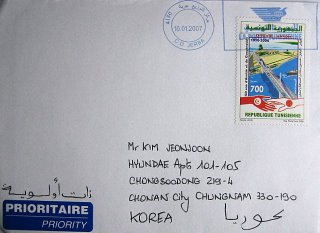 10.01.2007
C.D. JERBA
الجمهورية التونسية
1956-2006
700
REPUBLIQUE TUNISIENNE
Mr KIM JEONJOON
HYUNDAE Apts 101-105
CHONGSOODONG 219-4
CHONAN City CHUNGNAM 330-190
KOREA كوريا
ذات أولوية
PRIORITAIRE
PRIORITY